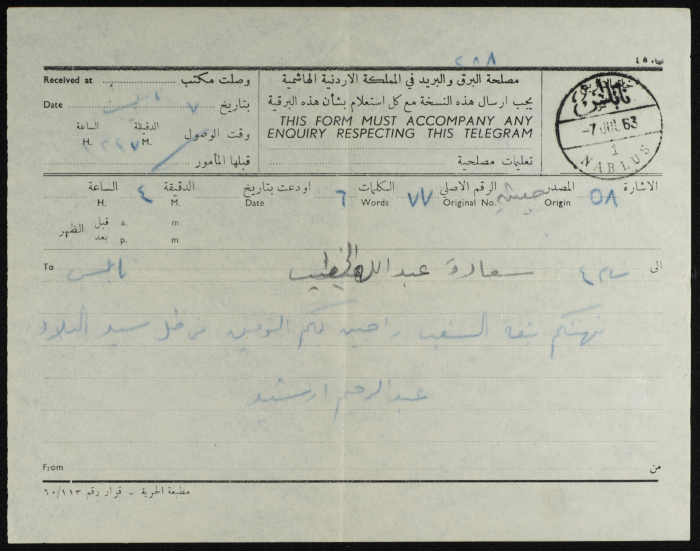 ٤٨٨
نماذج ٤٥
Received at وصلت مكتب
Date بتاريخ ٧ نابلس
الساعة الدقيقة وقت الوصول
H. M.
قبلها المأمور
مصلحة البرق والبريد في المملكة الاردنية الهاشمية
يجب ارسال هذه النسخة مع كل استعلام بشأن هذه البرقية
THIS FORM MUST ACCOMPANY ANY
ENQUIRY RESPECTING THIS TELEGRAM
تعليمات مصلحية
نابلس
-7 JUL 63
1
NABLUS
الاشارة ٥٨ المصدر جنين الرقم الاصلي ٧٧ الكلمات ٦ اودعت بتاريخ الدقيقة ٤ الساعة
Origin Original No. Words Date M. H.
قبل a. m
الظهر
بعد p. m
الى سعادة عبد الله الخطيب نابلس To
نهنئكم بثقة الشعب راجين لكم التوفيق في ظل سيد البلاد
عبدالرحيم ارشيد
From من
مطبعة الحرية - قرار رقم ٦٠/١١٣